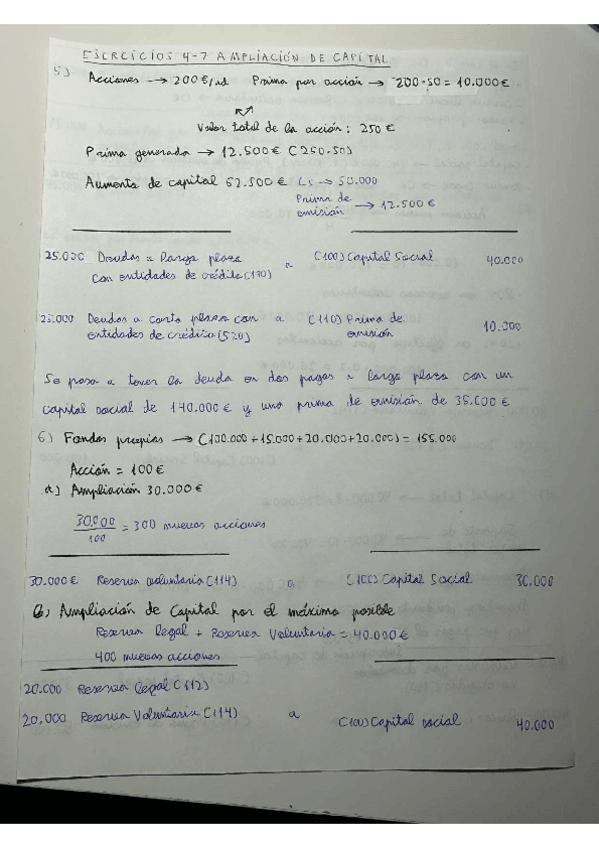 EJERCICIOS 4-7 AMPLIACIÓN DE CAPITAL
5) Acciones → 200€/ud Prima por acción → 200·50 = 10.000€
Valor total de la acción: 250 €
Prima generada → 12.500€ (250·50)
Aumento de capital 62.500€ Cs → 50.000
Prima de emisión → 12.500€
25.000 Deudas a largo plazo con entidades de crédito (170) a (100) Capital Social 40.000
25.000 Deudas a corto plazo con entidades de crédito (520) a (110) Prima de emisión 10.000
Se pasa a tener la deuda en dos pagos a largo plazo con un
capital social de 140.000€ y una prima de emisión de 35.000€
6) Fondos propios → (100.000 + 15.000 + 20.000 + 20.000) = 155.000
Acción = 100€
a) Ampliación 30.000€
30.000/100 = 300 nuevas acciones
30.000€ Reserva voluntaria (114) a (100) Capital Social 30.000
b) Ampliación de Capital por el máximo posible
Reserva legal + Reserva Voluntaria = 40.000€
400 nuevas acciones
20.000 Reserva legal (112)
20.000 Reserva Voluntaria (114) a (100) Capital social 40.000